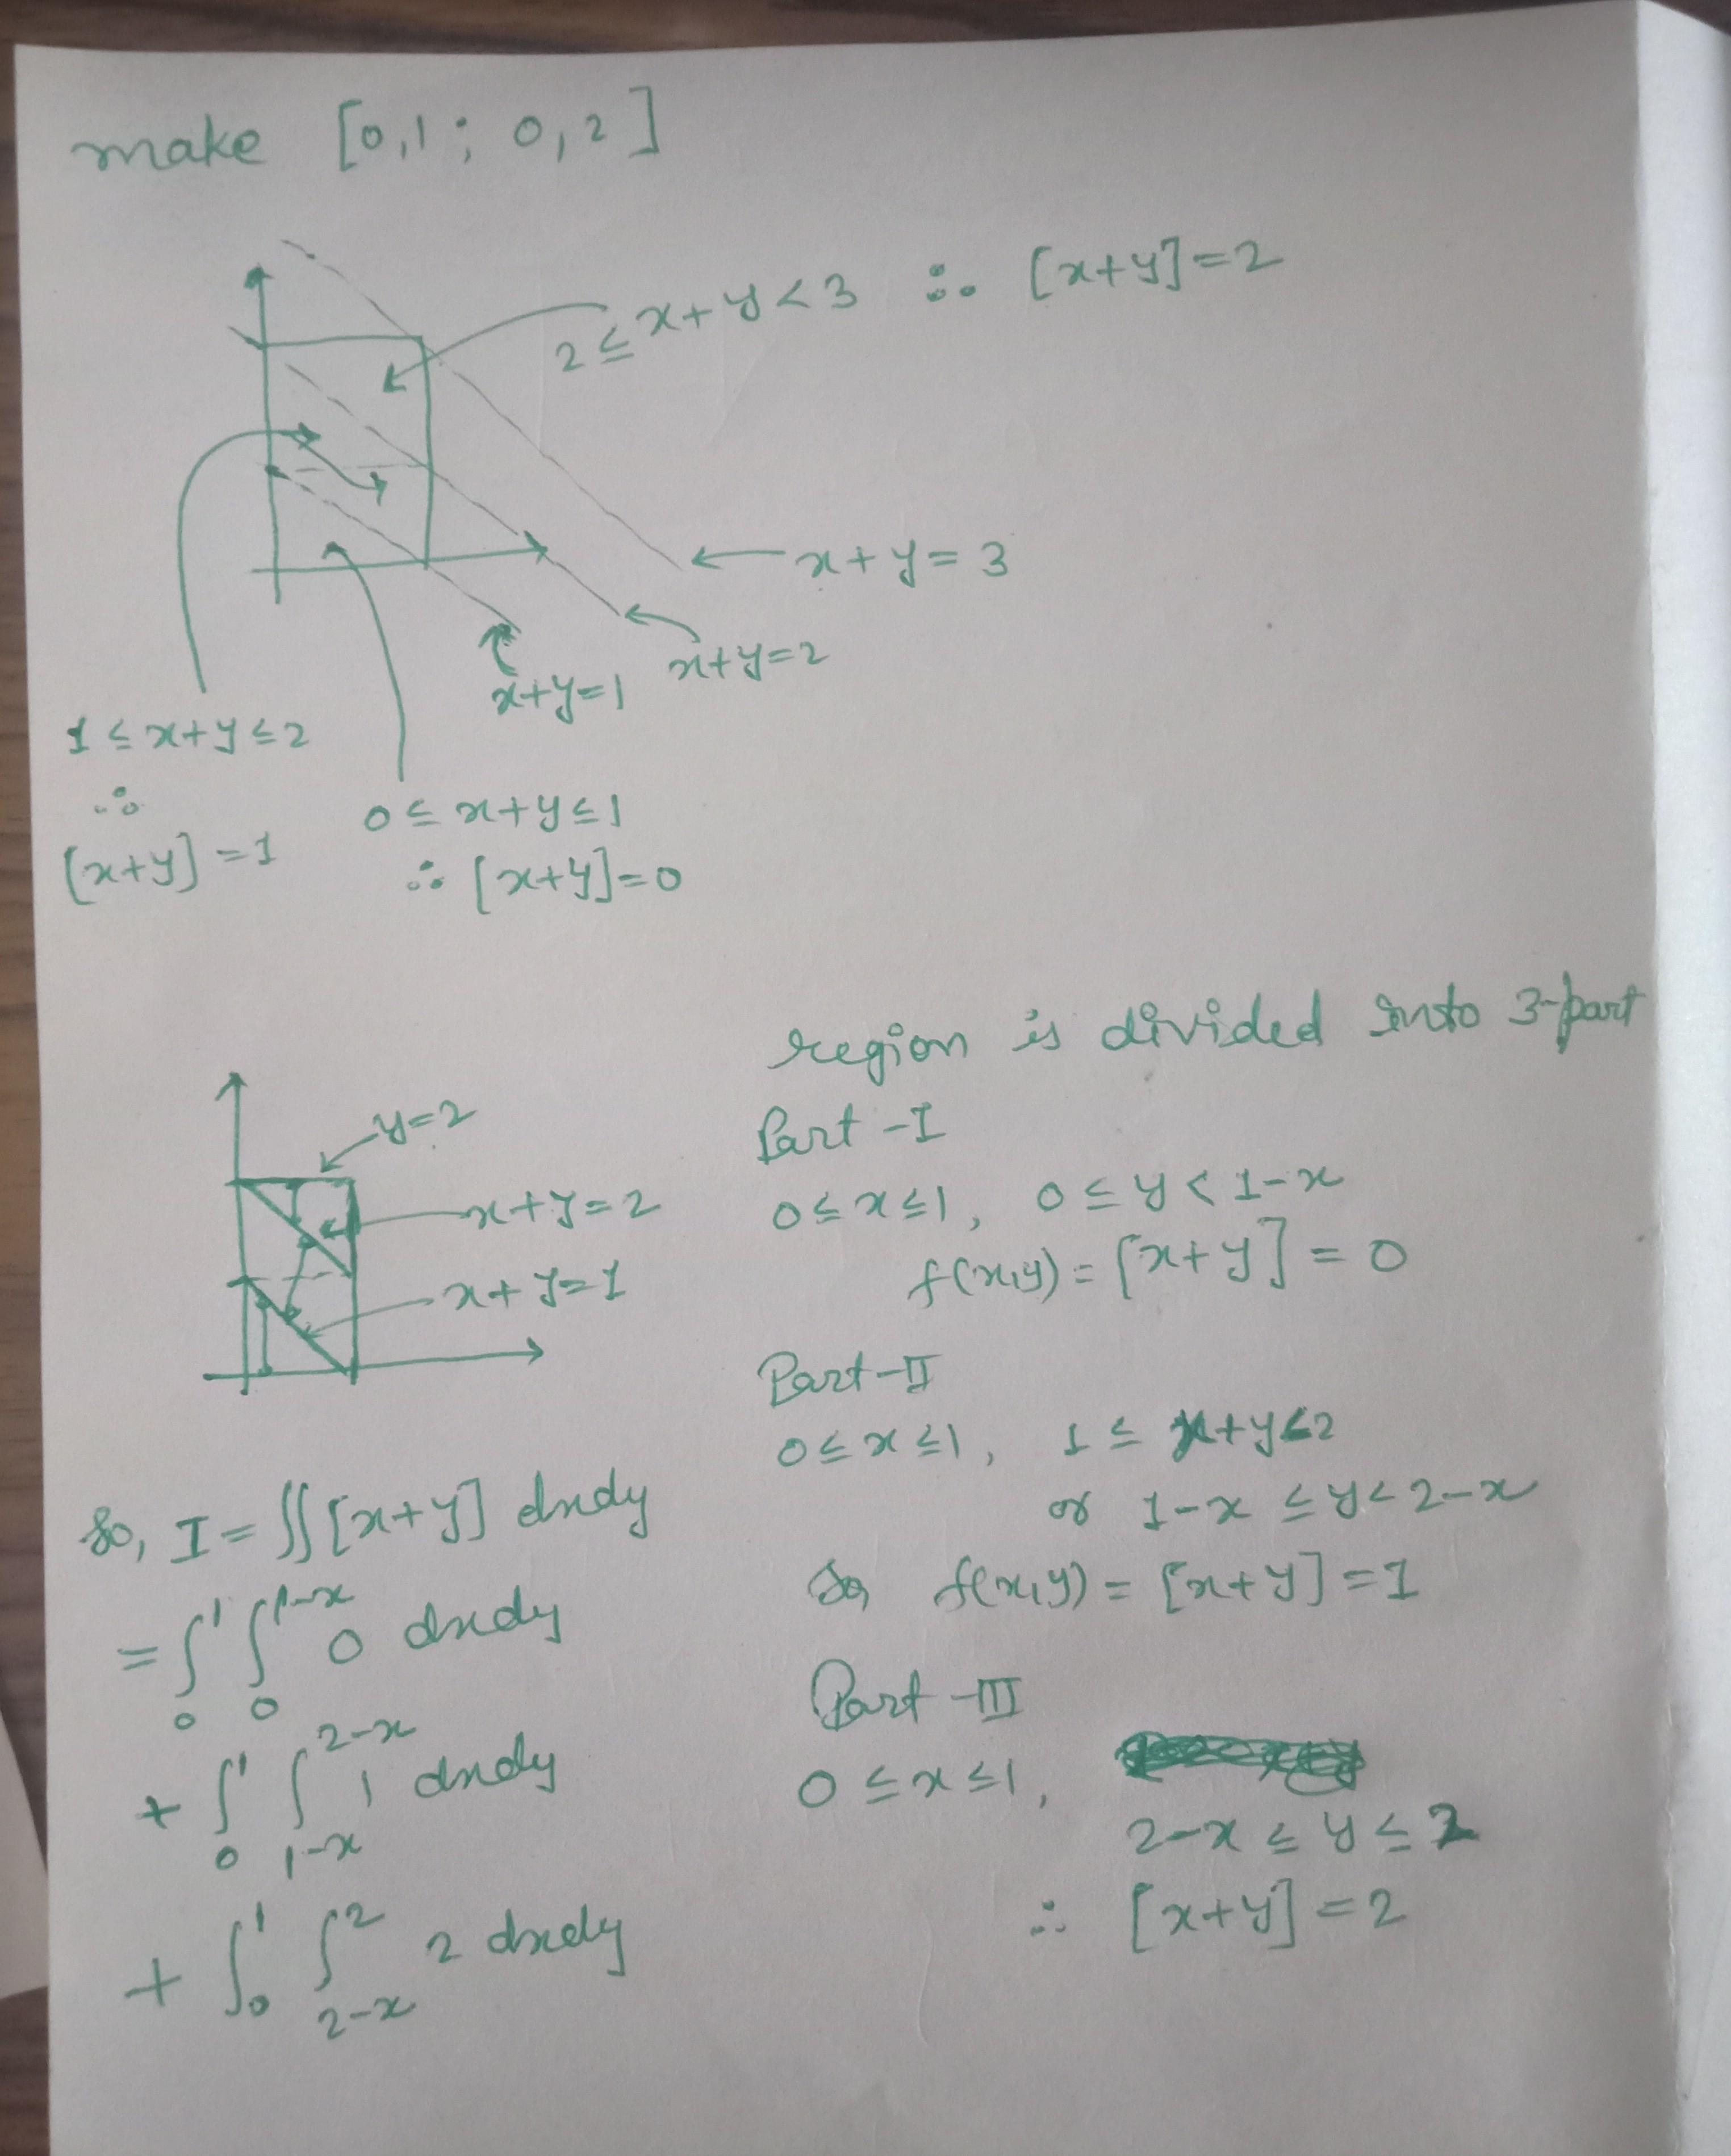 make [0,1; 0,2]
2 ≤ x+y<3 ∴ [x+y]=2
x+y=3
x+y=2
x+y=1
1 ≤ x+y ≤ 2
∴
[x+y] = 1
0 ≤ x+y ≤ 1
∴ [x+y]=0
region is divided into 3-part
y=2
x+y=2
x+y=1
Part -I
0≤x≤1, 0 ≤ y < 1-x
f(x,y) = [x+y] = 0
Part-II
0≤x≤1, 1 ≤ x+y<2
or 1-x ≤ y< 2-x
So, f(x,y) = [x+y] = 1
Part -III
0 ≤ x ≤1,
2-x ≤ y ≤ 2
∴ [x+y] = 2
So, I = ∬ [x+y] dxdy
= ∫₀¹ ∫₀^{1-x} 0 dxdy
+ ∫₀¹ ∫_{1-x}^{2-x} 1 dxdy
+ ∫₀¹ ∫_{2-x}^{2} 2 dxdy